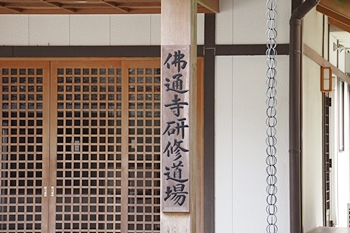 佛通寺研修道場